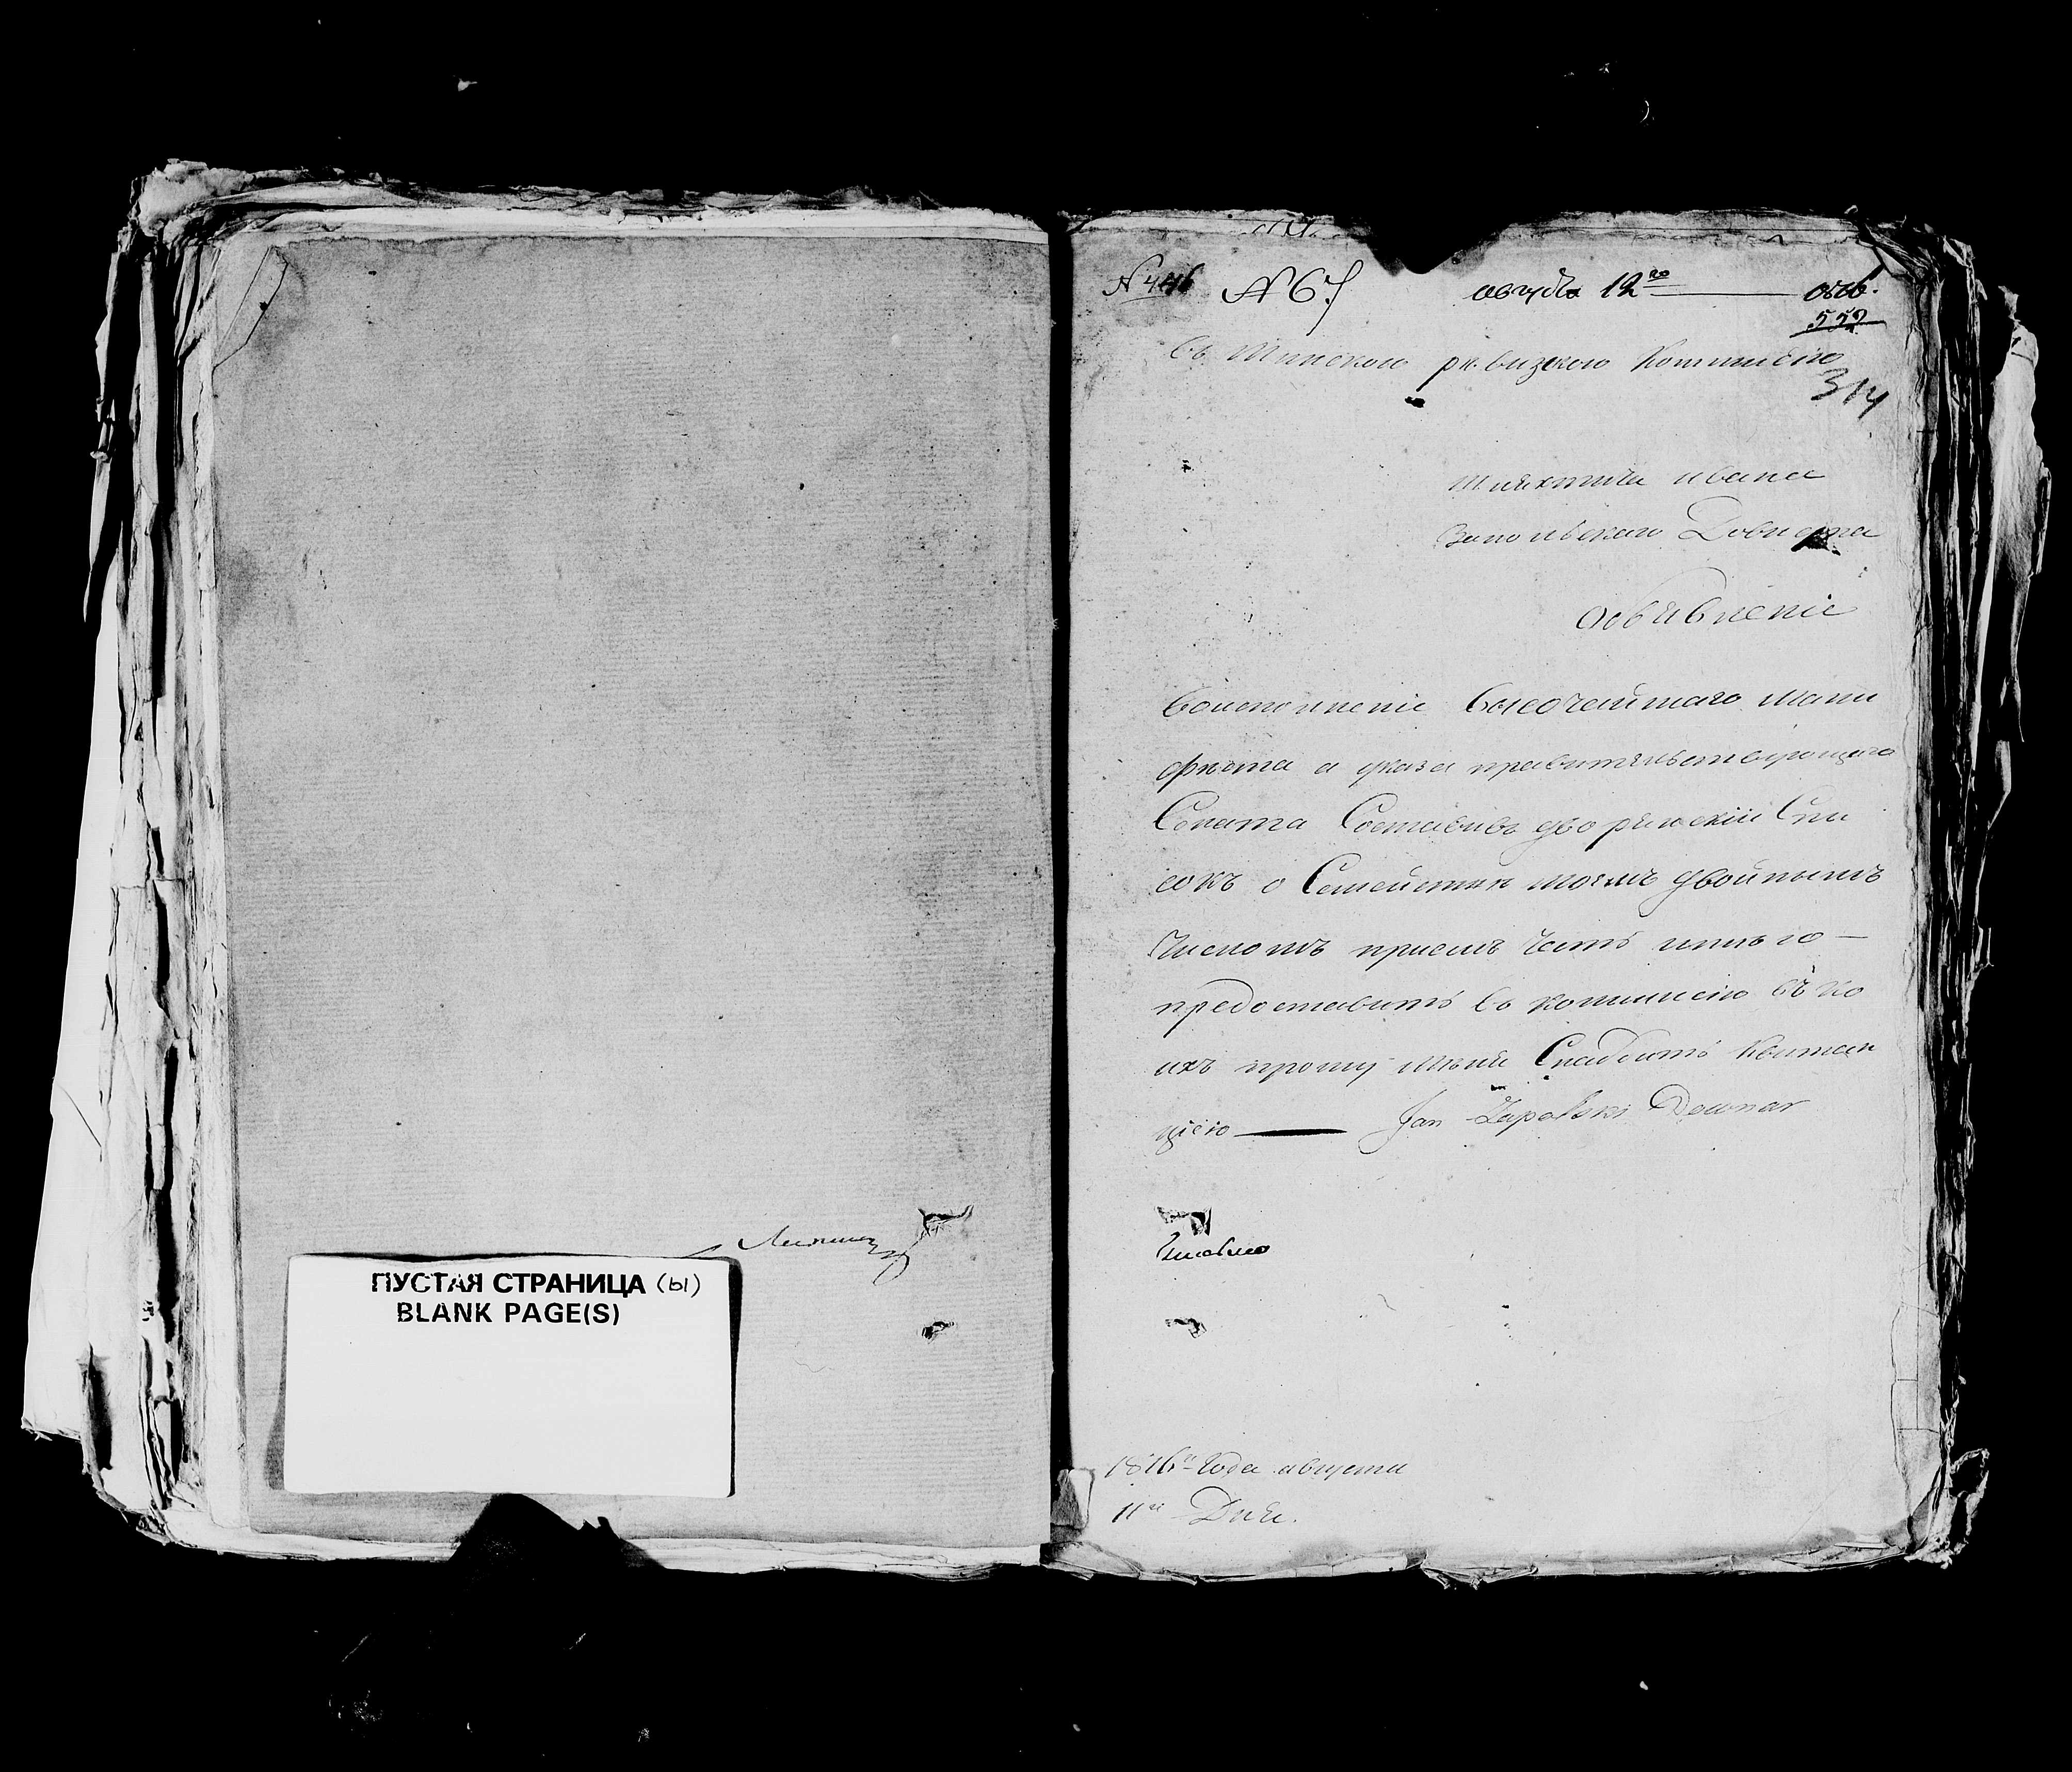 ПУСТАЯ СТРАНИЦА (ы)
BLANK PAGE(S)
N 446 N 67 августа 12го
552
Въ Минскою ревизкою Коммисию
314
Шляхтича ивана
Запольскаго Довнара
Объявление
Воисполнение Высочайшаго Мани
фѣста и указа правительствующаго
Сената Составивъ дворянскии Спи
сокъ о Семействѣ моемъ двойнымъ
Числомъ приемъ честь оного —
предоставить въ коммисию въ ко
ихъ прошу мѣня Снабдить Квитан
циею — Jan Zapolski Downar
1816го Года августа
11го Дня.